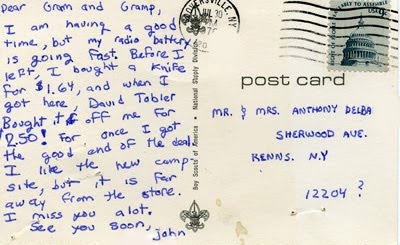 Dear Gram and Gramp,
I am having a good
time, but my radio battery
is going fast. Before I
left, I bought a Knife
for $1.64, and when I
got here, David Tobler
Bought it off me for
2.50! For once I got
the good end of the deal
I like the new camp
site, but it is far
away from the store.
I miss you alot.
See you soon,
john
Boy Scouts of America • National Supply Division
GLOVERSVILLE, NY
JUL 30
post card
MR. & MRS. ANTHONY DELBA
SHERWOOD AVE.
KENNS. N.Y
12204 ?